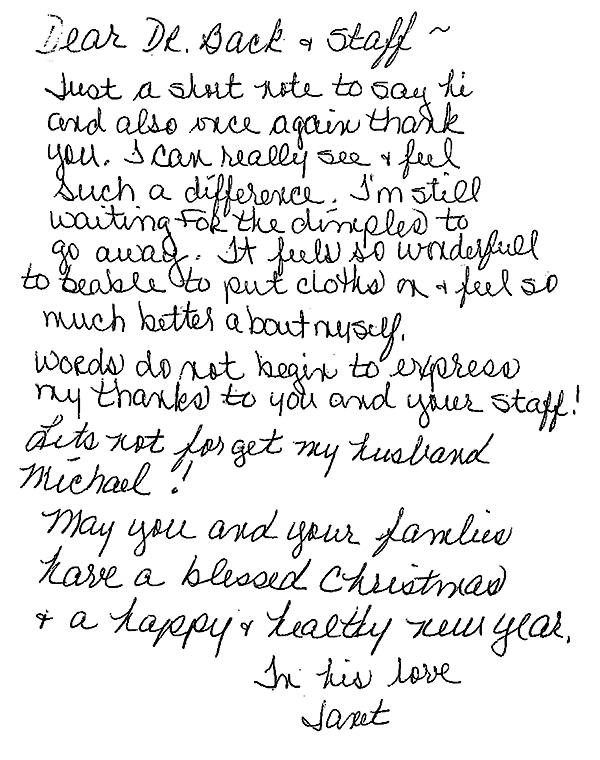 Dear Dr. Back & Staff ~
Just a short note to say hi
and also once again thank
you. I can really see & feel
such a difference. I'm still
waiting for the dimples to
go away. It feels so wonderfull
to beable to put cloths on & feel so
much better about myself.
Words do not begin to express
my thanks to you and your staff!
Lets not forget my husband
Michael!
May you and your families
have a blessed Christmas
& a happy & healthy new year.
In his love
Janet